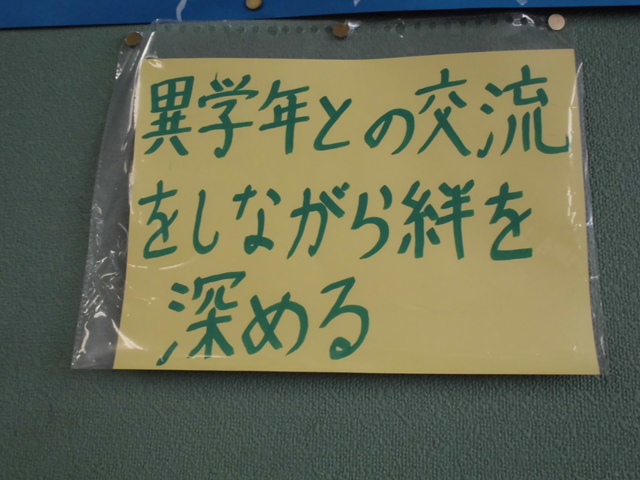 異学年との交流
をしながら絆を
深める